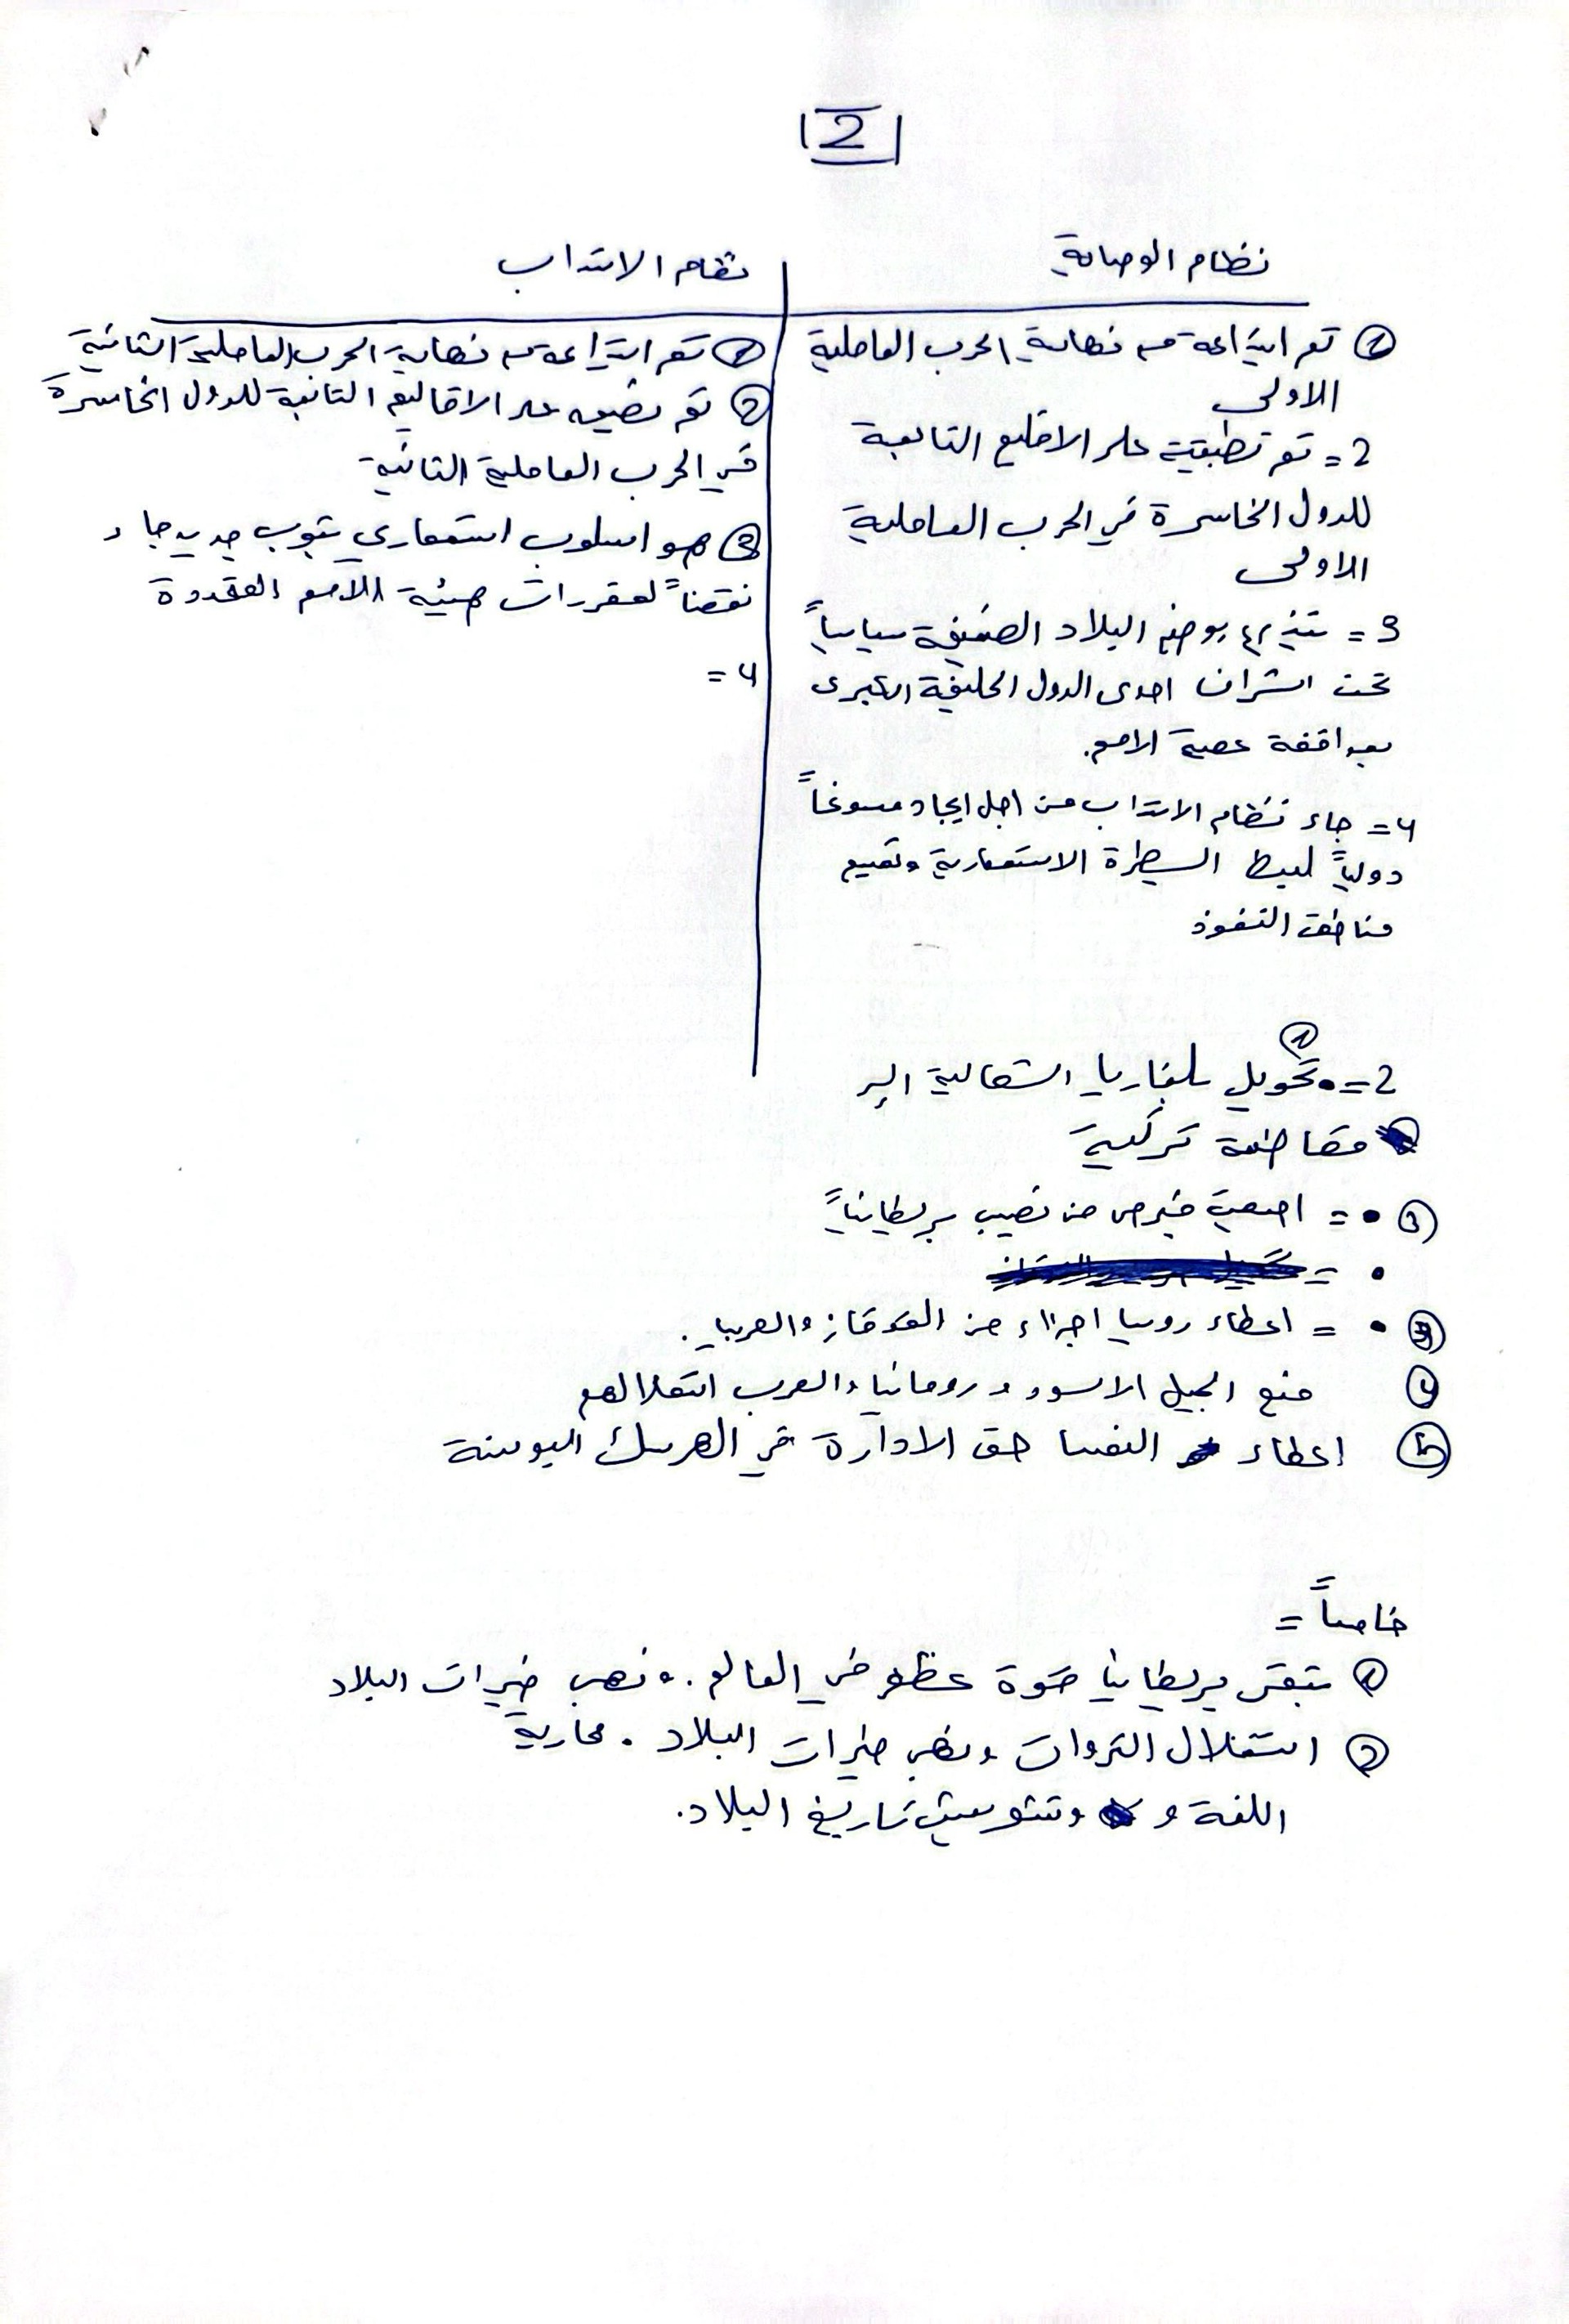 2
نظام الوصاية
نظام الانتداب
① تم ابتداعة في نهاية الحرب العاملية
الاولى
2 = تم تطبيقية على الاقليم التابعة
للدول الخاسرة في الحرب العاملية
الاولى
3 = بوضع البلاد الضعيفة سياسياً
تحت اشراف احدى الدول الحليفة الكبرى
بموافقة عصبة الامم.
4 = جاء نظام الانتداب من اجل ايجاد مسوغاً
دولياً لبسط السيطرة الاستعمارية وتقسيم
مناطق النفوذ
① تم ابتداعة في نهاية الحرب العاملية الثانية
② تم على الاقاليم التابعة للدول الخاسرة
في الحرب العاملية الثانية
③ هو اسلوب استعماري بثوب جديد جاء
نقضاً لمقررات هيئة الامم المتحدة
4 =
①
2 = • تحويل بلغاريا الشمالية الى
مقاطعة تركية
② • = اصبحت قبرص من نصيب بريطانياً
• =
③ • = اعطاء روسيا اجزاء من القوقاز والصربيا.
④ منح الجبل الاسود و رومانيا والصرب استقلالهم
⑤ اعطاء النمسا حق الادارة في الهرسك البوسنة
خامساً =
① تبقى بريطانيا قوة عظمى في العالم. ونهب خيرات البلاد
② استغلال الثروات ونهب خيرات البلاد. محاربة
اللغة و وتشويش تاريخ البلاد.